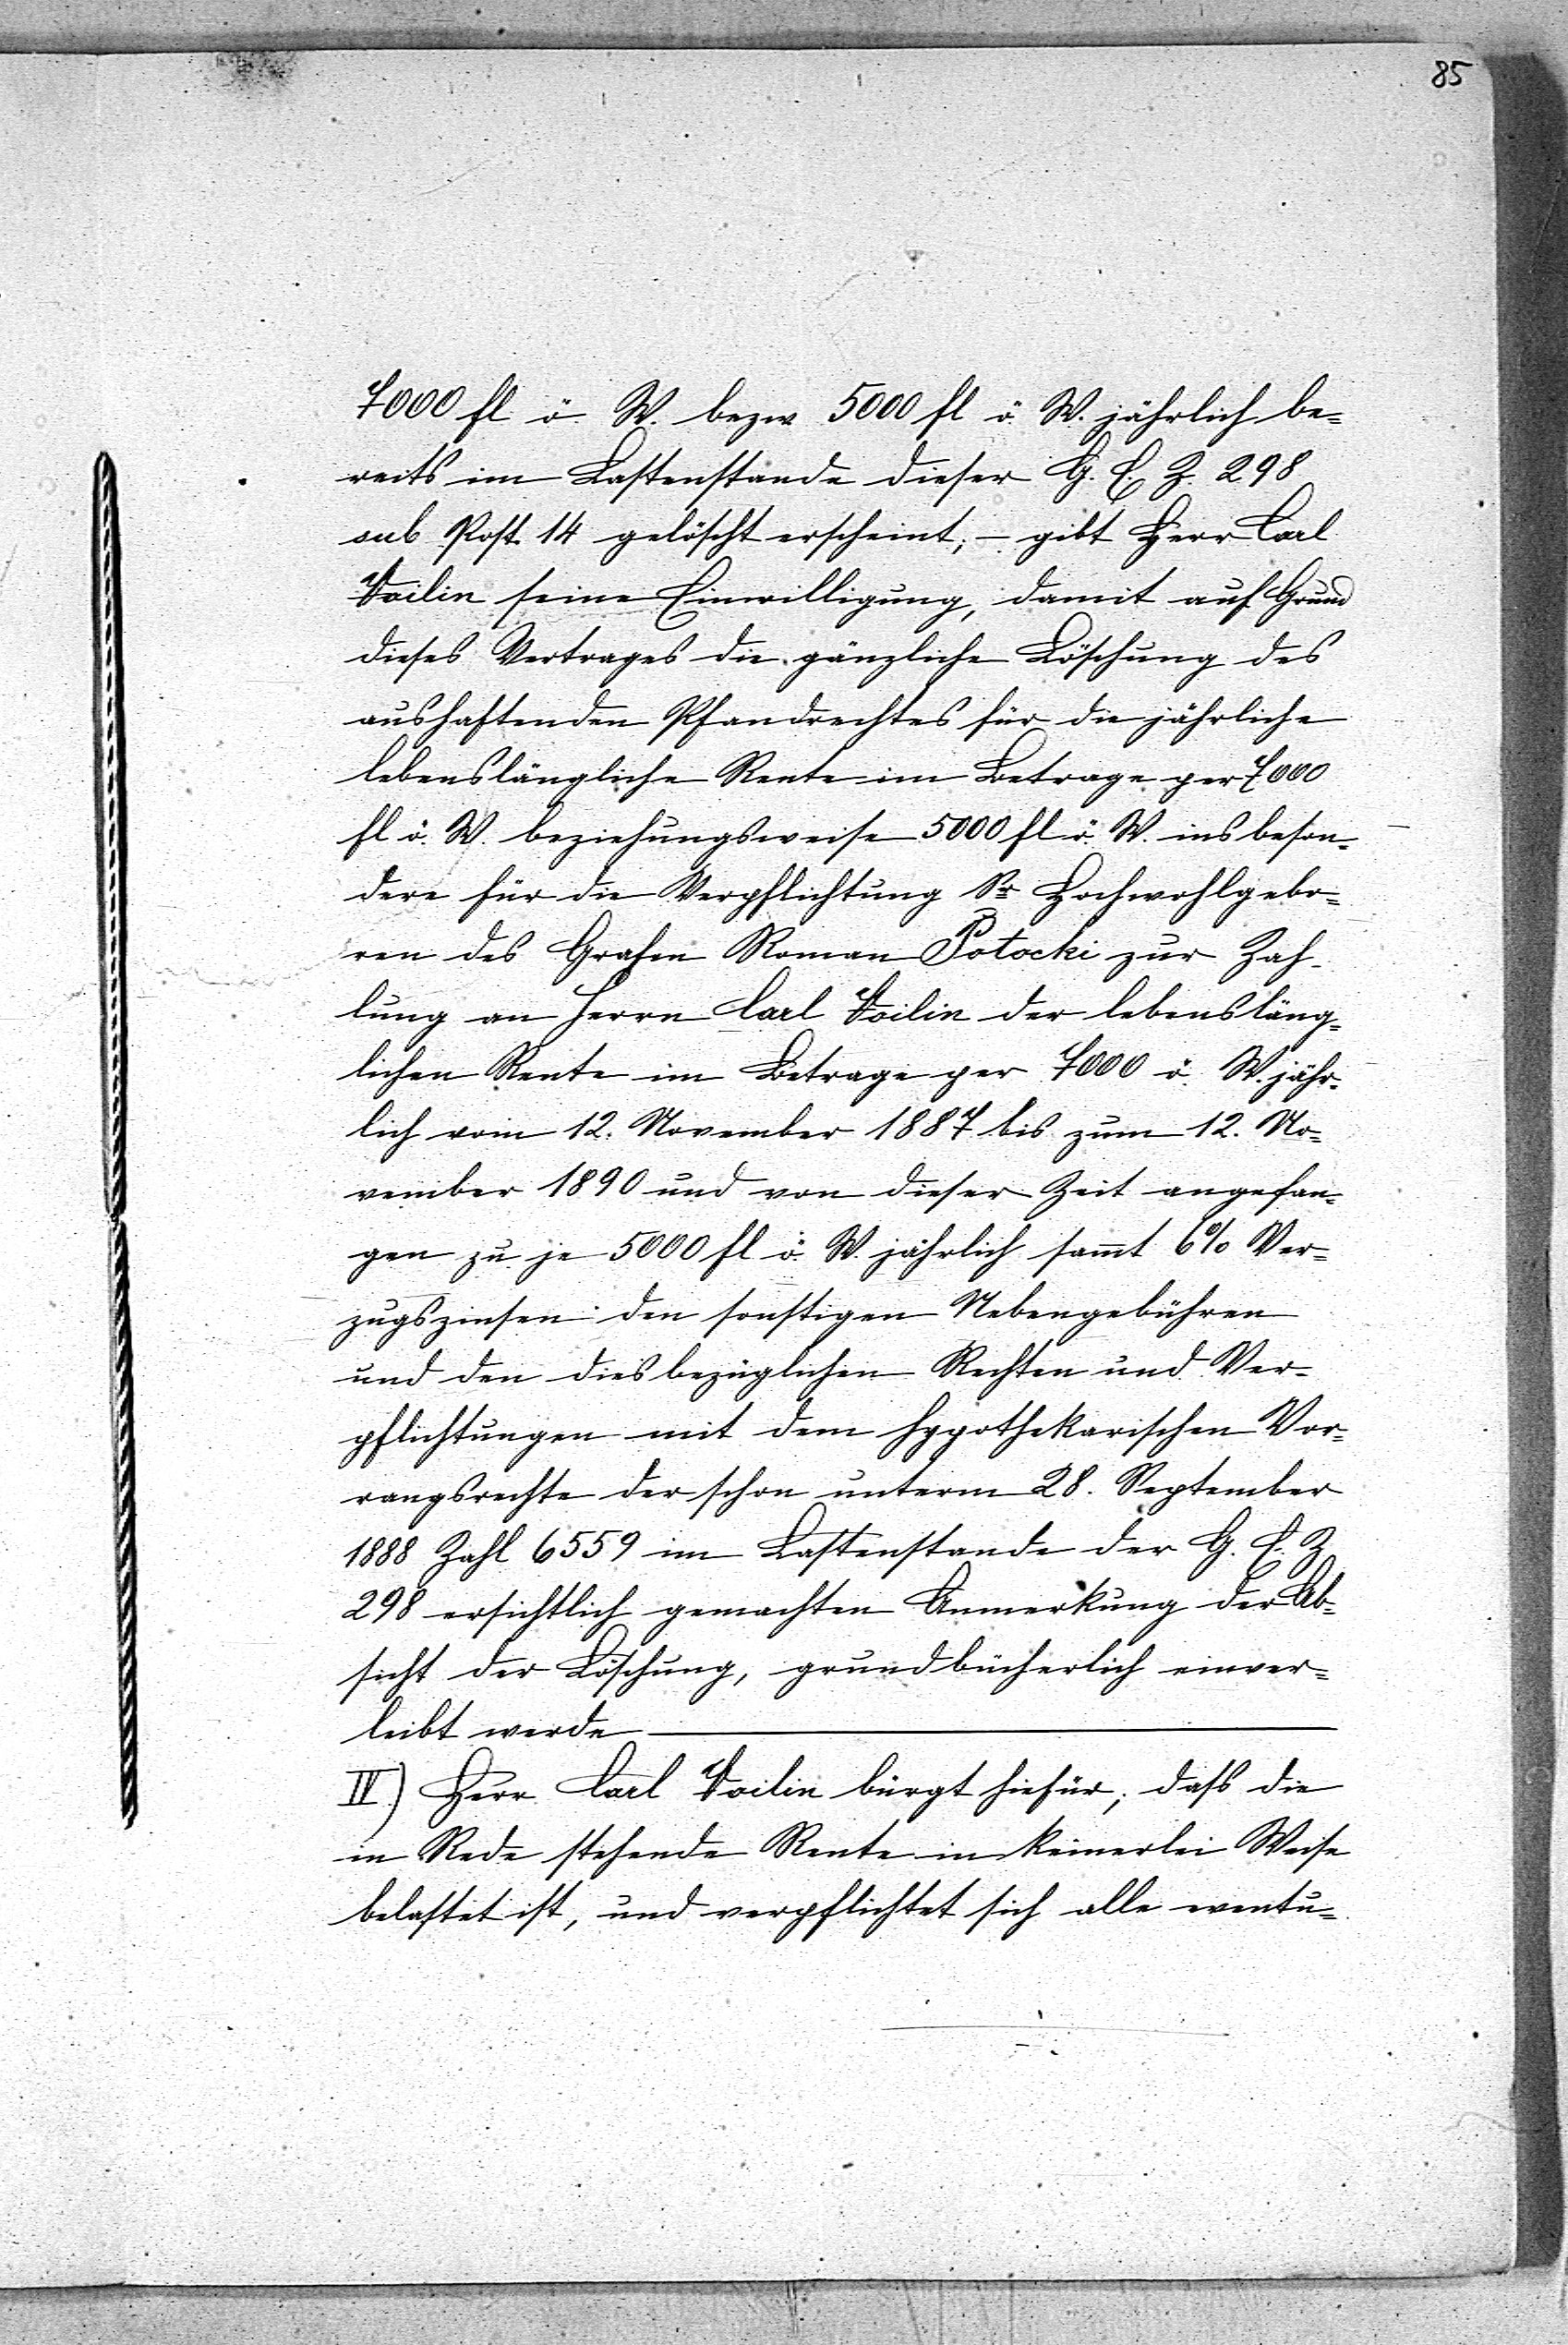 85
7000 fl ö. W. bezw. 5000 fl ö. W. jährlich be-
reits im Lastenstande dieser G. E. Z. 298
sub Post. 14 gelöscht erscheint; – gibt Herr Carl
Voilin seine Einwilligung, damit auf Grund
dieses Vertrages die gänzliche Löschung des
aushaftenden Pfandrechtes für die jährliche
lebenslängliche Rente im Betrage per 7000
fl ö. W. beziehungsweise 5000 fl ö. W. insbeson-
dere für die Verpflichtung Sr Hochwohlgebo-
ren des Grafen Roman Potocki zur Zah-
lung an Herrn Carl Voilin der lebensläng-
lichen Rente im Betrage per 7000 ö. W. jähr-
lich vom 12. November 1887 bis zum 12. No-
vember 1890 und von dieser Zeit angefan-
gen zu je 5000 fl ö. W. jährlich sam̄t 6% Ver-
zugszinsen den sonstigen Nebengebühren
und den diesbezüglichen Rechten und Ver-
pflichtungen mit dem hypothekarischen Vor-
rangsrechte der schon unterm 28. September
1888 Zahl 6559 im Lastenstande der G. E. Z.
298 ersichtlich gemachten Anmerkung der Ab-
sicht der Löschung, grundbücherlich einver-
leibt werde
IV.) Herr Carl Voilin bürgt hiefür, daß die
in Rede stehende Rente in keinerlei Weise
belastet ist, und verpflichtet sich alle eventu-